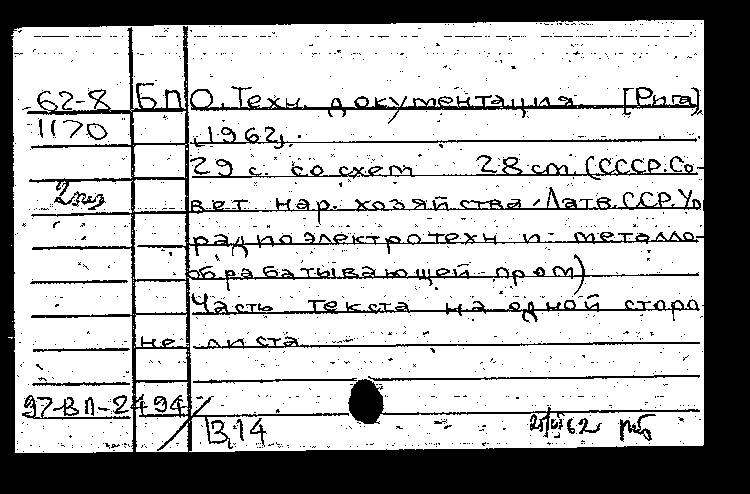 62-8 БПО. Техн. документация. [Рига]
1170 [1962].
29 с. со схем 28 cm. (СССР. Со-
2 экз вет нар. хозяйства Латв. ССР. Упр
радиоэлектротехн и металло-
обрабатывающей пром)
Часть текста на одной сторо
не листа
97-ВП-2494
В,14 62